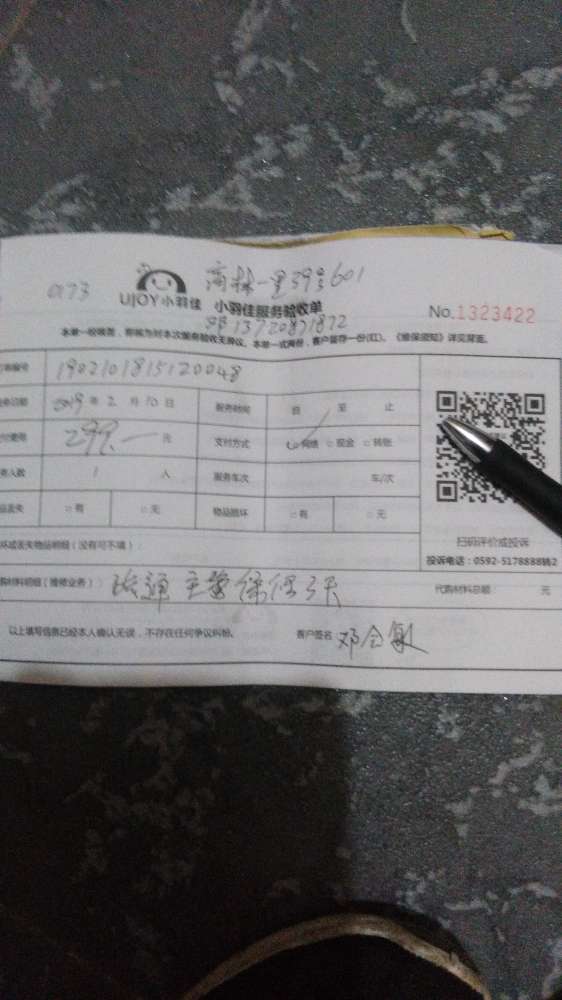 0173 高林一里39号601
UJOY小羽佳 小羽佳服务验收单
13720871872
No.1323422
本单一经验签，即视为对本次服务验收无异议。本单一式两份，客户留存一份(红)。《维保须知》详见背面。
单编号 1902101815120048
务日期 2019年2月10日 服务时间 自 至 止
付费用 299.一元 支付方式 网络 □现金 □转账
务人数 1 人 服务车次 车/次
品丢失 □有 □无 物品损坏 □有 □无
坏或丢失物品明细（没有可不填）：
扫码评价或投诉
投诉电话：0592-5178888转2
购材料明细（维修业务）： 疏通主管保停3天 代购材料总额： 元
以上填写信息已经本人确认无误，不存在任何争议纠纷。 客户签名：邓会敏